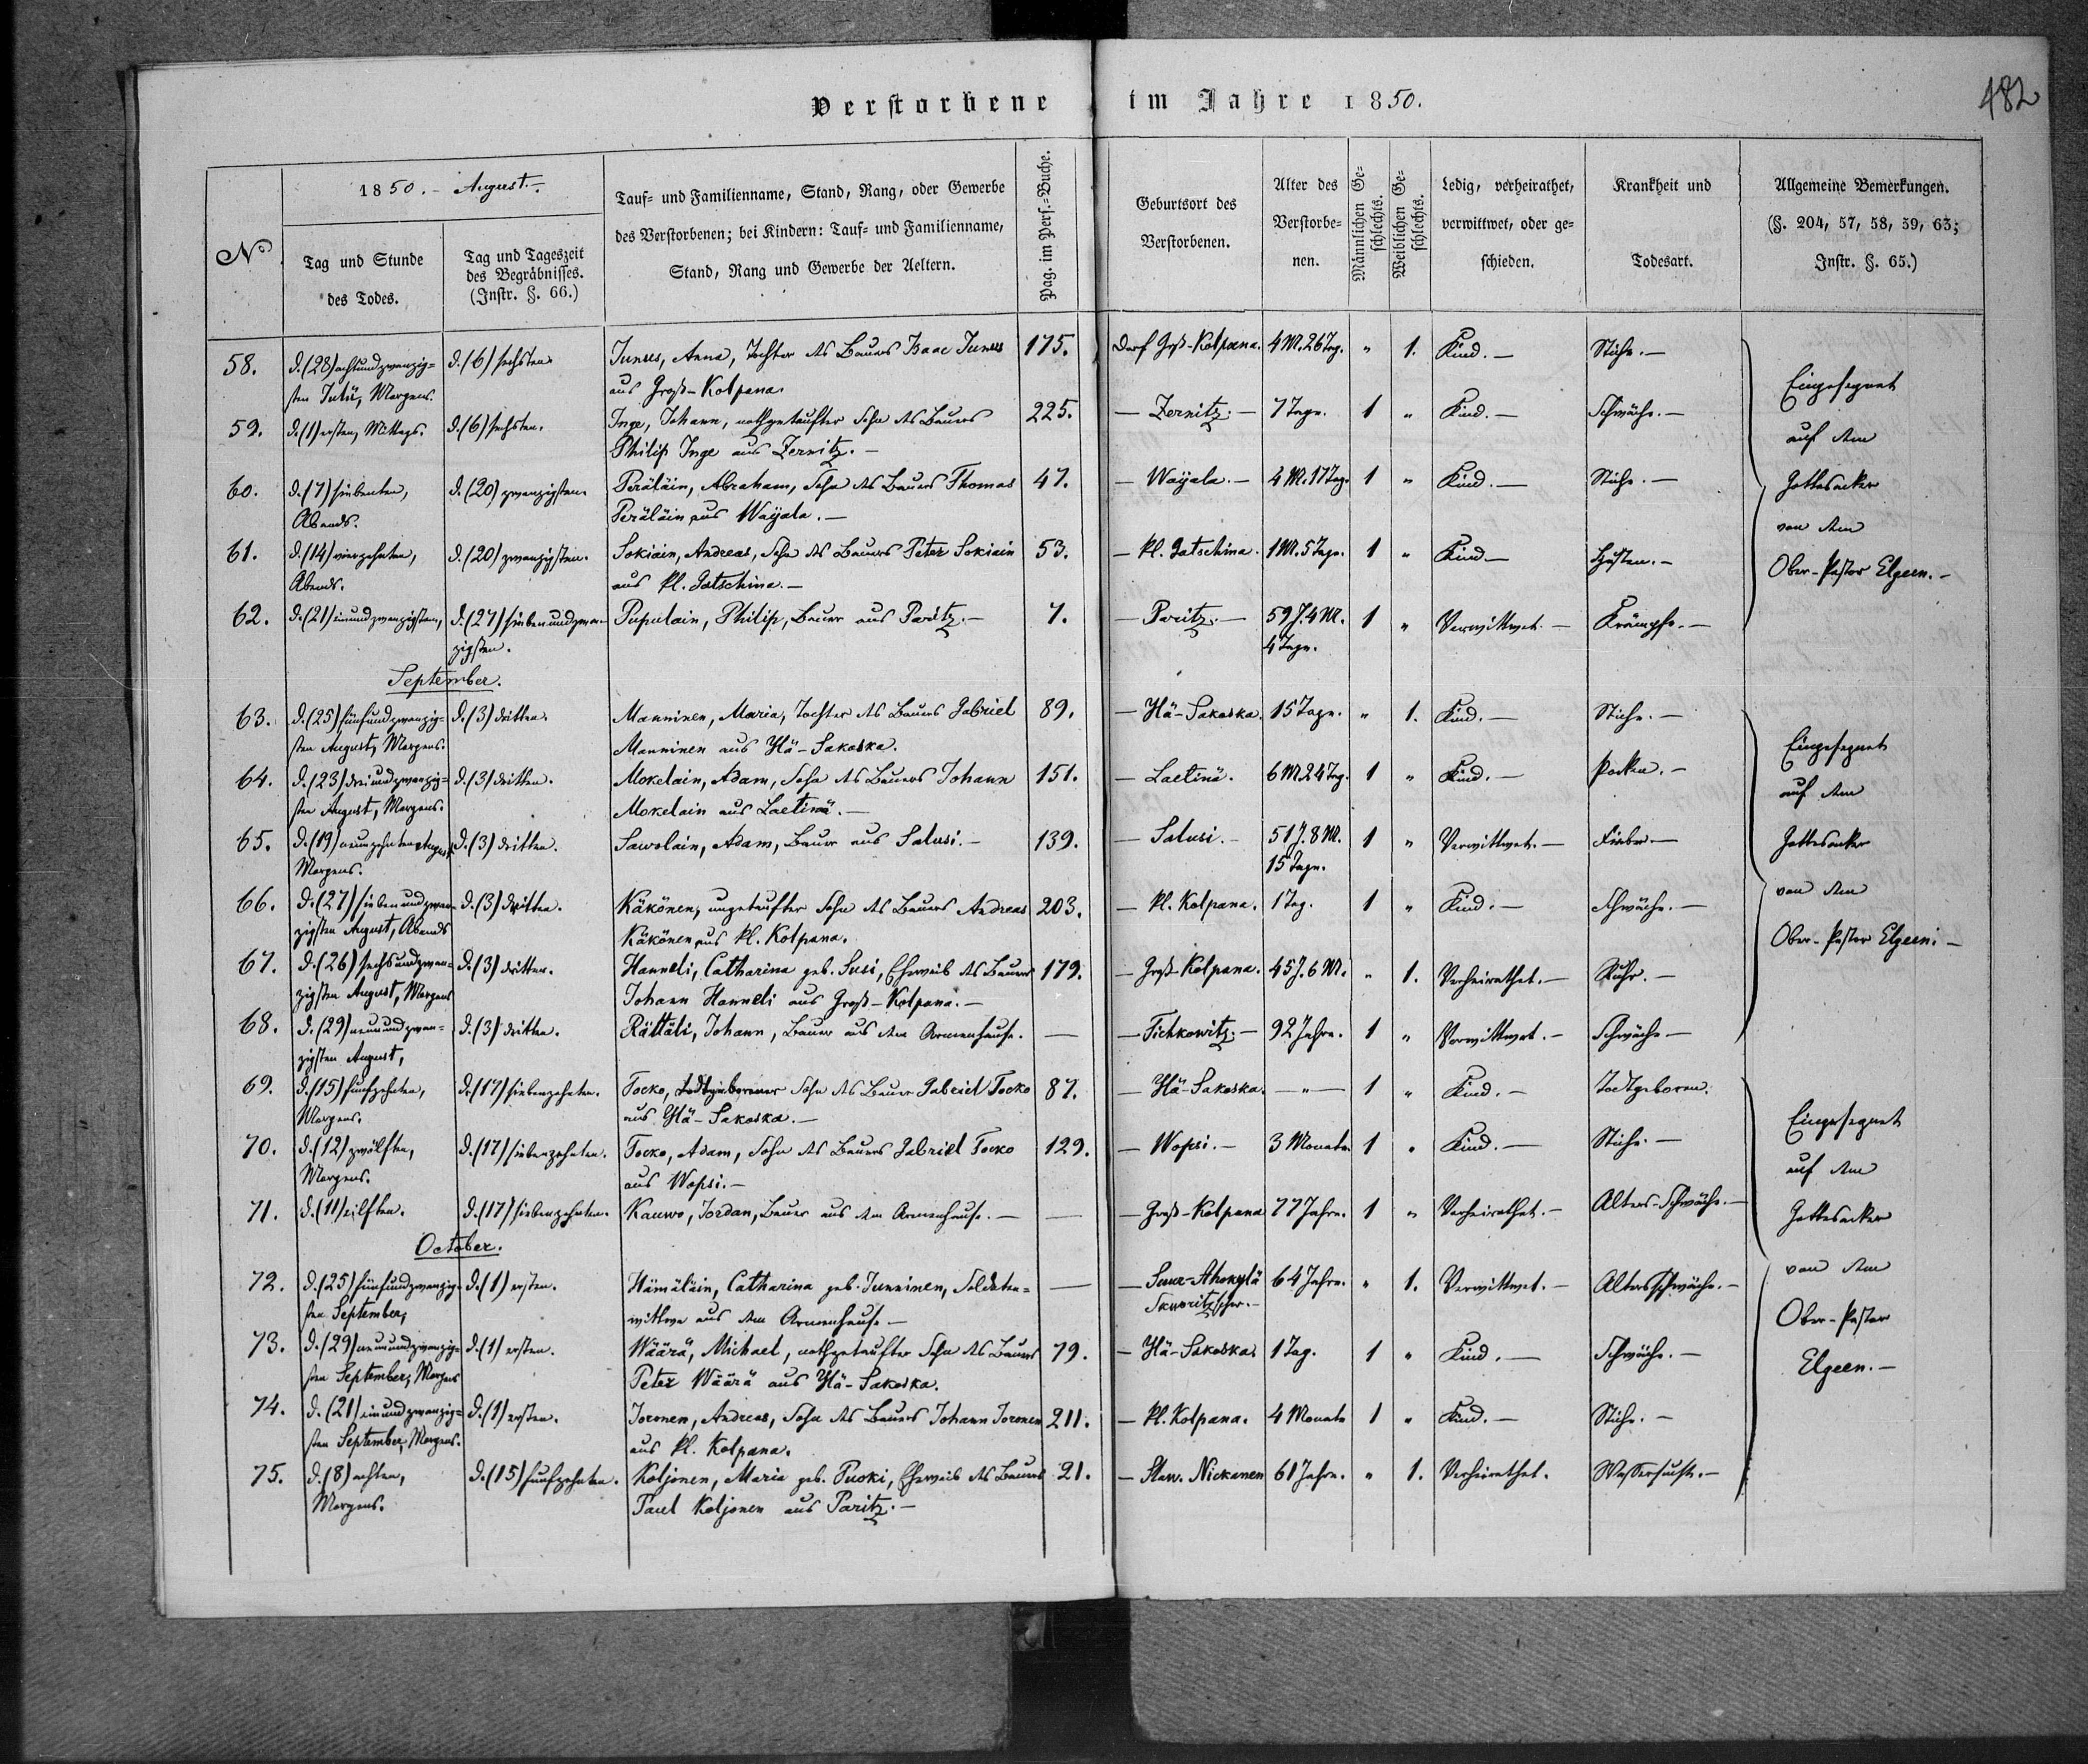 Verstorbene im Jahre 1850.
482
No
1850. – August. –
Tag und Stunde
des Todes.
Tag und Tageszeit
des Begräbnisses.
(Instr. §. 66.)
Tauf- und Familienname, Stand, Rang, oder Gewerbe
des Verstorbenen; bei Kindern: Tauf- und Familienname,
Stand, Rang und Gewerbe der Aeltern.
Pag. im Pers.-Buche.
Geburtsort des
Verstorbenen.
Alter des
Verstorbe-
nen.
Männlichen Ge-
schlechts.
Weiblichen Ge-
schlechts.
Ledig, verheirathet,
verwittwet, oder ge-
schieden.
Krankheit und
Todesart.
Allgemeine Bemerkungen.
(§. 204, 57, 58, 59, 63;
Instr. §. 65.)
58. d. (28) achtundzwanzig= d. (6) sechsten. Junus, Anna, Tochter des Bauers Isaac Junus 175. Dorf Groß-Kolpana. 4 M. 26 Tag. " 1. Kind. – Stiche. –
sten Julii, Morgens. aus Groß-Kolpana.
59. d. (1) ersten, Mittags. d. (6) sechsten. Inge, Johann, nothgetaufter Sohn des Bauers 225. – Zernitz. – 7 Tage. 1 " Kind. – Schwäche. –
Philip Inge aus Zernitz. –
60. d. (7) siebenten, d. (20) zwanzigsten. Peräläin, Abraham, Sohn des Bauers Thomas 47. – Wayala. – 4 M. 17 Tag. 1 " Kind. – Stiche. –
Abends. Peräläin aus Wayala. –
61. d. (14) vierzehnten, d. (20) zwanzigsten. Sokiain, Andreas, Sohn des Bauers Peter Sokiain 53. – Kl. Gatschina. 1 M. 5 Tage. 1 " Kind – Husten. –
Abends. aus Kl. Gatschina. –
62. d. (21) einundzwanzigsten, d. (27) siebenundzwan- Pupulain, Philip, Bauer aus Paritz. – 7. – Paritz. – 59 J. 4 M. 1 " Verwittwet. – Krämpfe. –
zigsten. 4 Tage.
Eingesegnet
auf dem
Gottesacker
von dem
Ober-Pastor Elgeen. –
September.
63. d. (25) fünfundzwanzig= d. (3) dritten. Manninen, Maria, Tochter des Bauers Gabriel 89. – Hä-Sakaska. 15 Tage. " 1. Kind. – Stiche. –
sten August, Morgens. Manninen aus Hä-Sakaska.
64. d. (23) dreiundzwanzig= d. (3) dritten. Mokelain, Adam, Sohn des Bauers Johann 151. – Laetinä. 6 M. 24 Tag. 1 " Kind. – Pocken. –
sten August, Morgens. Mokelain aus Laetinä. –
65. d. (19) neunzehnten August d. (3) dritten. Sawolain, Adam, Bauer aus Salusi. – 139. – Salusi. – 51 J. 8 M. 1 " Verwittwet. – Fieber –
Morgens. 15 Tage.
66. d. (27) siebenundzwan- d. (3) dritten. Käkönen, ungetaufter Sohn des Bauers Andreas 203. – Kl. Kolpana. 1 Tag. 1 " Kind. – Schwäche. –
zigsten August, Abends Käkönen aus Kl. Kolpana.
67. d. (26) sechsundzwan- d. (3) dritten. Hanneli, Catharina geb. Susi, Eheweib des Bauers 179. – Groß-Kolpana. 45 J. 6 M. " 1. Verheirathet. – Ruhr. –
zigsten August, Morgens Johann Hanneli aus Groß-Kolpana. –
68. d. (29) neunundzwan- d. (3) dritten. Rättäli, Johann, Bauer aus dem Armenhause. – – Fichkowitz. – 92 Jahre. 1 " Verwittwet. – Schwäche –
zigsten August,
Eingesegnet
auf dem
Gottesacker
von dem
Ober-Pastor Elgeen. –
69. d. (15) fünfzehnten, d. (17) siebenzehnten. Tocko, todtgeborener Sohn des Bauers Gabriel Tocko 87. – Hä-Sakaska. – " – 1 " Kind. – Todtgeboren.
Morgens. aus Hä-Sakaska. –
70. d. (12) zwölften, d. (17) siebenzehnten. Tocko, Adam, Sohn des Bauers Gabriel Tocko 129. – Wopsi. – 3 Monate 1 " Kind. – Stiche. –
Morgens. aus Wopsi. –
71. d. (11) eilften. d. (17) siebenzehnten. Kauwo, Jordan, Bauer aus dem Armenhause. – – – Groß-Kolpana 77 Jahre. 1 " Verheirathet. – Alters-Schwäche. –
October.
72. d. (25) fünfundzwanzig= d. (1) ersten. Hämäläin, Catharina geb. Junninen, Soldaten= – – Suur-Ahokylä 64 Jahre. " 1. Verwittwet. – Altersschwäche. –
sten September, wittwe aus dem Armenhause –
73. d. (29) neunundzwanzig= d. (1) ersten. Wäärä, Michael, nothgetaufter Sohn des Bauers 79. – Hä-Sakaska. 1 Tag. 1 " Kind. – Schwäche. –
sten September, Morgens Peter Wäärä aus Hä-Sakaska.
74. d. (21) einundzwanzig= d. (1) ersten. Joronen, Andreas, Sohn des Bauers Johann Joronen 211. – Kl. Kolpana. 4 Monate 1 " Kind. – Stiche. –
sten September, Morgens. aus Kl. Kolpana.
75. d. (8) achten, d. (15) fünfzehnten. Koljonen, Maria geb. Puoki, Eheweib des Bauers 21. – Slaw. Nickanen 61 Jahre. " 1. Verheirathet. Wassersucht. –
Morgens. Paul Koljonen aus Paritz. –
Eingesegnet
auf dem
Gottesacker
von dem
Ober-Pastor
Elgeen. –